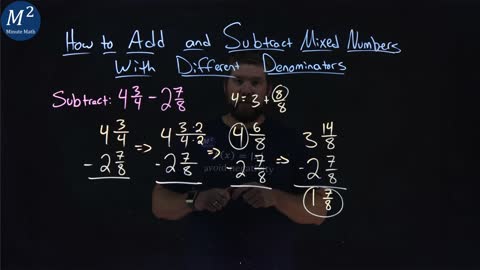 M²
Minute Math
How to Add and Subtract Mixed Numbers
With Different Denominators
Subtract: 4 3/4 - 2 7/8
4 = 3 + 8/8
4 3/4 => 4 3·2/4·2 => 4 6/8 => 3 14/8
- 2 7/8 - 2 7/8 - 2 7/8 - 2 7/8
1 7/8